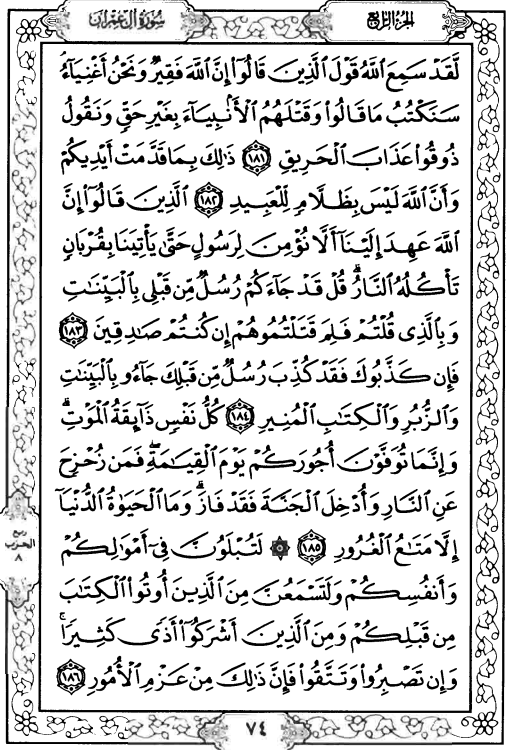 سُورَةُ آلِ عِمْرَانَ
الجُزْءُ الرَّابِعُ
لَّقَدْ سَمِعَ اللَّهُ قَوْلَ الَّذِينَ قَالُوا إِنَّ اللَّهَ فَقِيرٌ وَنَحْنُ أَغْنِيَاءُ
سَنَكْتُبُ مَا قَالُوا وَقَتْلَهُمُ الْأَنبِيَاءَ بِغَيْرِ حَقٍّ وَنَقُولُ
ذُوقُوا عَذَابَ الْحَرِيقِ ١٨١ ذَٰلِكَ بِمَا قَدَّمَتْ أَيْدِيكُمْ
وَأَنَّ اللَّهَ لَيْسَ بِظَلَّامٍ لِّلْعَبِيدِ ١٨٢ الَّذِينَ قَالُوا إِنَّ
اللَّهَ عَهِدَ إِلَيْنَا أَلَّا نُؤْمِنَ لِرَسُولٍ حَتَّىٰ يَأْتِيَنَا بِقُرْبَانٍ
تَأْكُلُهُ النَّارُ ۗ قُلْ قَدْ جَاءَكُمْ رُسُلٌ مِّن قَبْلِي بِالْبَيِّنَاتِ
وَبِالَّذِي قُلْتُمْ فَلِمَ قَتَلْتُمُوهُمْ إِن كُنتُمْ صَادِقِينَ ١٨٣
فَإِن كَذَّبُوكَ فَقَدْ كُذِّبَ رُسُلٌ مِّن قَبْلِكَ جَاءُو بِالْبَيِّنَاتِ
وَالزُّبُرِ وَالْكِتَابِ الْمُنِيرِ ١٨٤ كُلُّ نَفْسٍ ذَائِقَةُ الْمَوْتِ ۗ
وَإِنَّمَا تُوَفَّوْنَ أُجُورَكُمْ يَوْمَ الْقِيَامَةِ ۖ فَمَن زُحْزِحَ
عَنِ النَّارِ وَأُدْخِلَ الْجَنَّةَ فَقَدْ فَازَ ۗ وَمَا الْحَيَوٰةُ الدُّنْيَا
إِلَّا مَتَاعُ الْغُرُورِ ١٨٥ ۞ لَتُبْلَوُنَّ فِي أَمْوَالِكُمْ
وَأَنفُسِكُمْ وَلَتَسْمَعُنَّ مِنَ الَّذِينَ أُوتُوا الْكِتَابَ
مِن قَبْلِكُمْ وَمِنَ الَّذِينَ أَشْرَكُوا أَذًى كَثِيرًا ۚ
وَإِن تَصْبِرُوا وَتَتَّقُوا فَإِنَّ ذَٰلِكَ مِنْ عَزْمِ الْأُمُورِ ١٨٦
ربع
الحزب
٨
٧٤